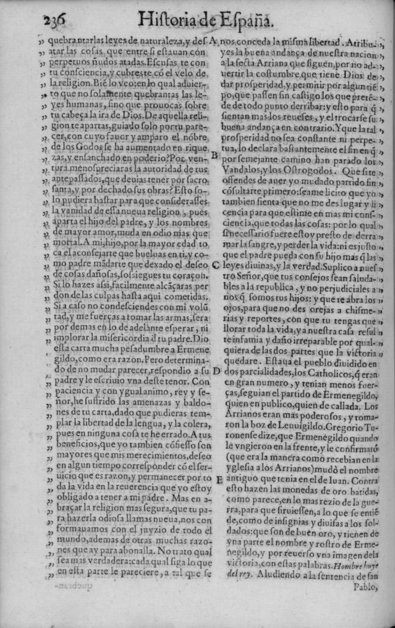 236
Historia de España.
quebrantar las leyes de naturaleza, y des
atar las cosas que entre si estauan con
perpetuos ñudos atadas. Escusas te con
tu consciencia, y cubres te cõ el velo de
la religion. Biẽ lo veo: en lo qual aduier-
to que no solamente quebrantas las le-
yes humanas, sino que prouocas sobre
tu cabeça la ira de Dios. De aquella reli-
gion te apartas, guiado solo por tu pare-
cer, con cuyo fauor y amparo el nõbre
de los Godos se ha aumentado en rique
zas, y ensanchado en poderio? Por ven-
tura menosprecias la autoridad de tus
antepassados, que deuias tener por sacro
santa, y por dechado sus obras? Esto so-
lo pudiera bastar para que considerasses
la vanidad de essa nueua religion, pues
aparta el hijo del padre, y los nombres
de mayor amor, muda en odio mas que
mortal. A mi, hijo, por la mayor edad to
ca el aconsejarte que bueluas en ti, y co-
mo padre mãdarte que dexado el desseo
de cosas dañosas, sossiegues tu coraçon.
Si lo hazes assi, facilmente alcãçaras per
don de las culpas hasta aqui cometidas.
Si a caso no condesciendes con mi volũ
tad, y me fuerças a tomar las armas, sera
por demas en lo de adelante esperar, ni
implorar la misericordia d̃ tu padre. Dio
esta carta mucha pesadumbre a Ermene
gildo, como era razon. Pero determina-
do de no mudar parecer, respondio a su
padre y le escriuio vna deste tenor. Con
paciencia y con ygual animo, rey y se-
ñor, he sufrido las amenazas y baldo-
nes de tu carta, dado que pudieras tem-
plar la libertad de la lengua, y la colera,
pues en ninguna cosa te he errado. A tus
beneficios, que yo tambien cõfiesso son
mayores que mis merecimientos, desseo
en algun tiempo corresponder cõ el ser-
uicio que es razon, y permanecer por to
da la vida en la reuerencia que yo estoy
obligado a tener a mi padre. Mas en a-
braçar la religion mas segura, que tu pa-
ra hazerla odiosa llamas nueua, nos con
formamos con el juyzio de todo el
mundo, ademas de otras muchas razo-
nes que ay para abonalla. No trato qual
sea mas verdadera: cada qual siga lo que
en esta parte le pareciere, a tal que se
nos conceda la misma libertad. Atribu-
yes la buena andança de nuestra nacion
a la secta Arriana que siguen, por no ad-
uertir la costumbre que tiene Dios de
dar prosperidad, y permitir por algun tiẽ
po, que passen sin castigo los que preten-
de de todo punto derribar: y esto para q̃
sientan mas los reueses, y el trocarse su
buena andança en contrario. Y que la tal
prosperidad no sea constante ni perpe-
tua, lo declara bastantemente el fin en q̃
por semejante camino han parado los
Vandalos, y los Ostrogodos. Que si te
offendes de auer yo mudado partido sin
cõsultarte primero: seame licito que yo
tambien sienta que no me des lugar y li
cencia para que estime en mas mi cons-
ciencia, que todas las cosas: por lo qual
si necessario fuere estoy presto de derra-
mar la sangre, y perder la vida: ni es justo
que el padre pueda con su hijo mas que
leyes diuinas, y la verdad. Suplico a nues-
tro Señor, que tus consejos sean saluda-
bles a la republica, y no perjudiciales a
nos q̃ somos tus hijos: y que te abra los
ojos, para que no des orejas a chisme-
rias y reportes, con que tu tengas que
llorar toda la vida, y a nuestra casa resul
te infamia y daño irreparable por qual-
quiera de las dos partes que la victoria
quedare. Estaua el pueblo diuidido en
dos parcialidades, los Catholicos, q̃ eran
en gran numero, y tenian menos fuer-
ças, seguian el partido de Ermenegildo,
quien en publico, quien de callada. Los
Arrianos eran mas poderosos, y toma-
ron la boz de Leuuigildo. Gregorio Tu-
ronense dize, que Ermenegildo quando
le vngieron en la frente, y le confirmarõ
(que era la manera como recebian en la
yglesia a los Arrianos) mudò el nombre
antiguo que tenia en el de Iuan. Contra
esto hazen las monedas de oro batidas,
como parece, en lo mas rezio de la guer-
ra, para que siruiessen, a lo que se entiẽ-
de, como de insignias y diuisas a los sol-
dados: que son de buen oro, y tienen de
vna parte el nombre y rostro de Erme-
negildo, y por reuerso vna imagen de la
victoria, con estas palabras. Hombre huye
del rey. Aludiendo a la sentencia de san
Pablo,
A
B
C
D
E